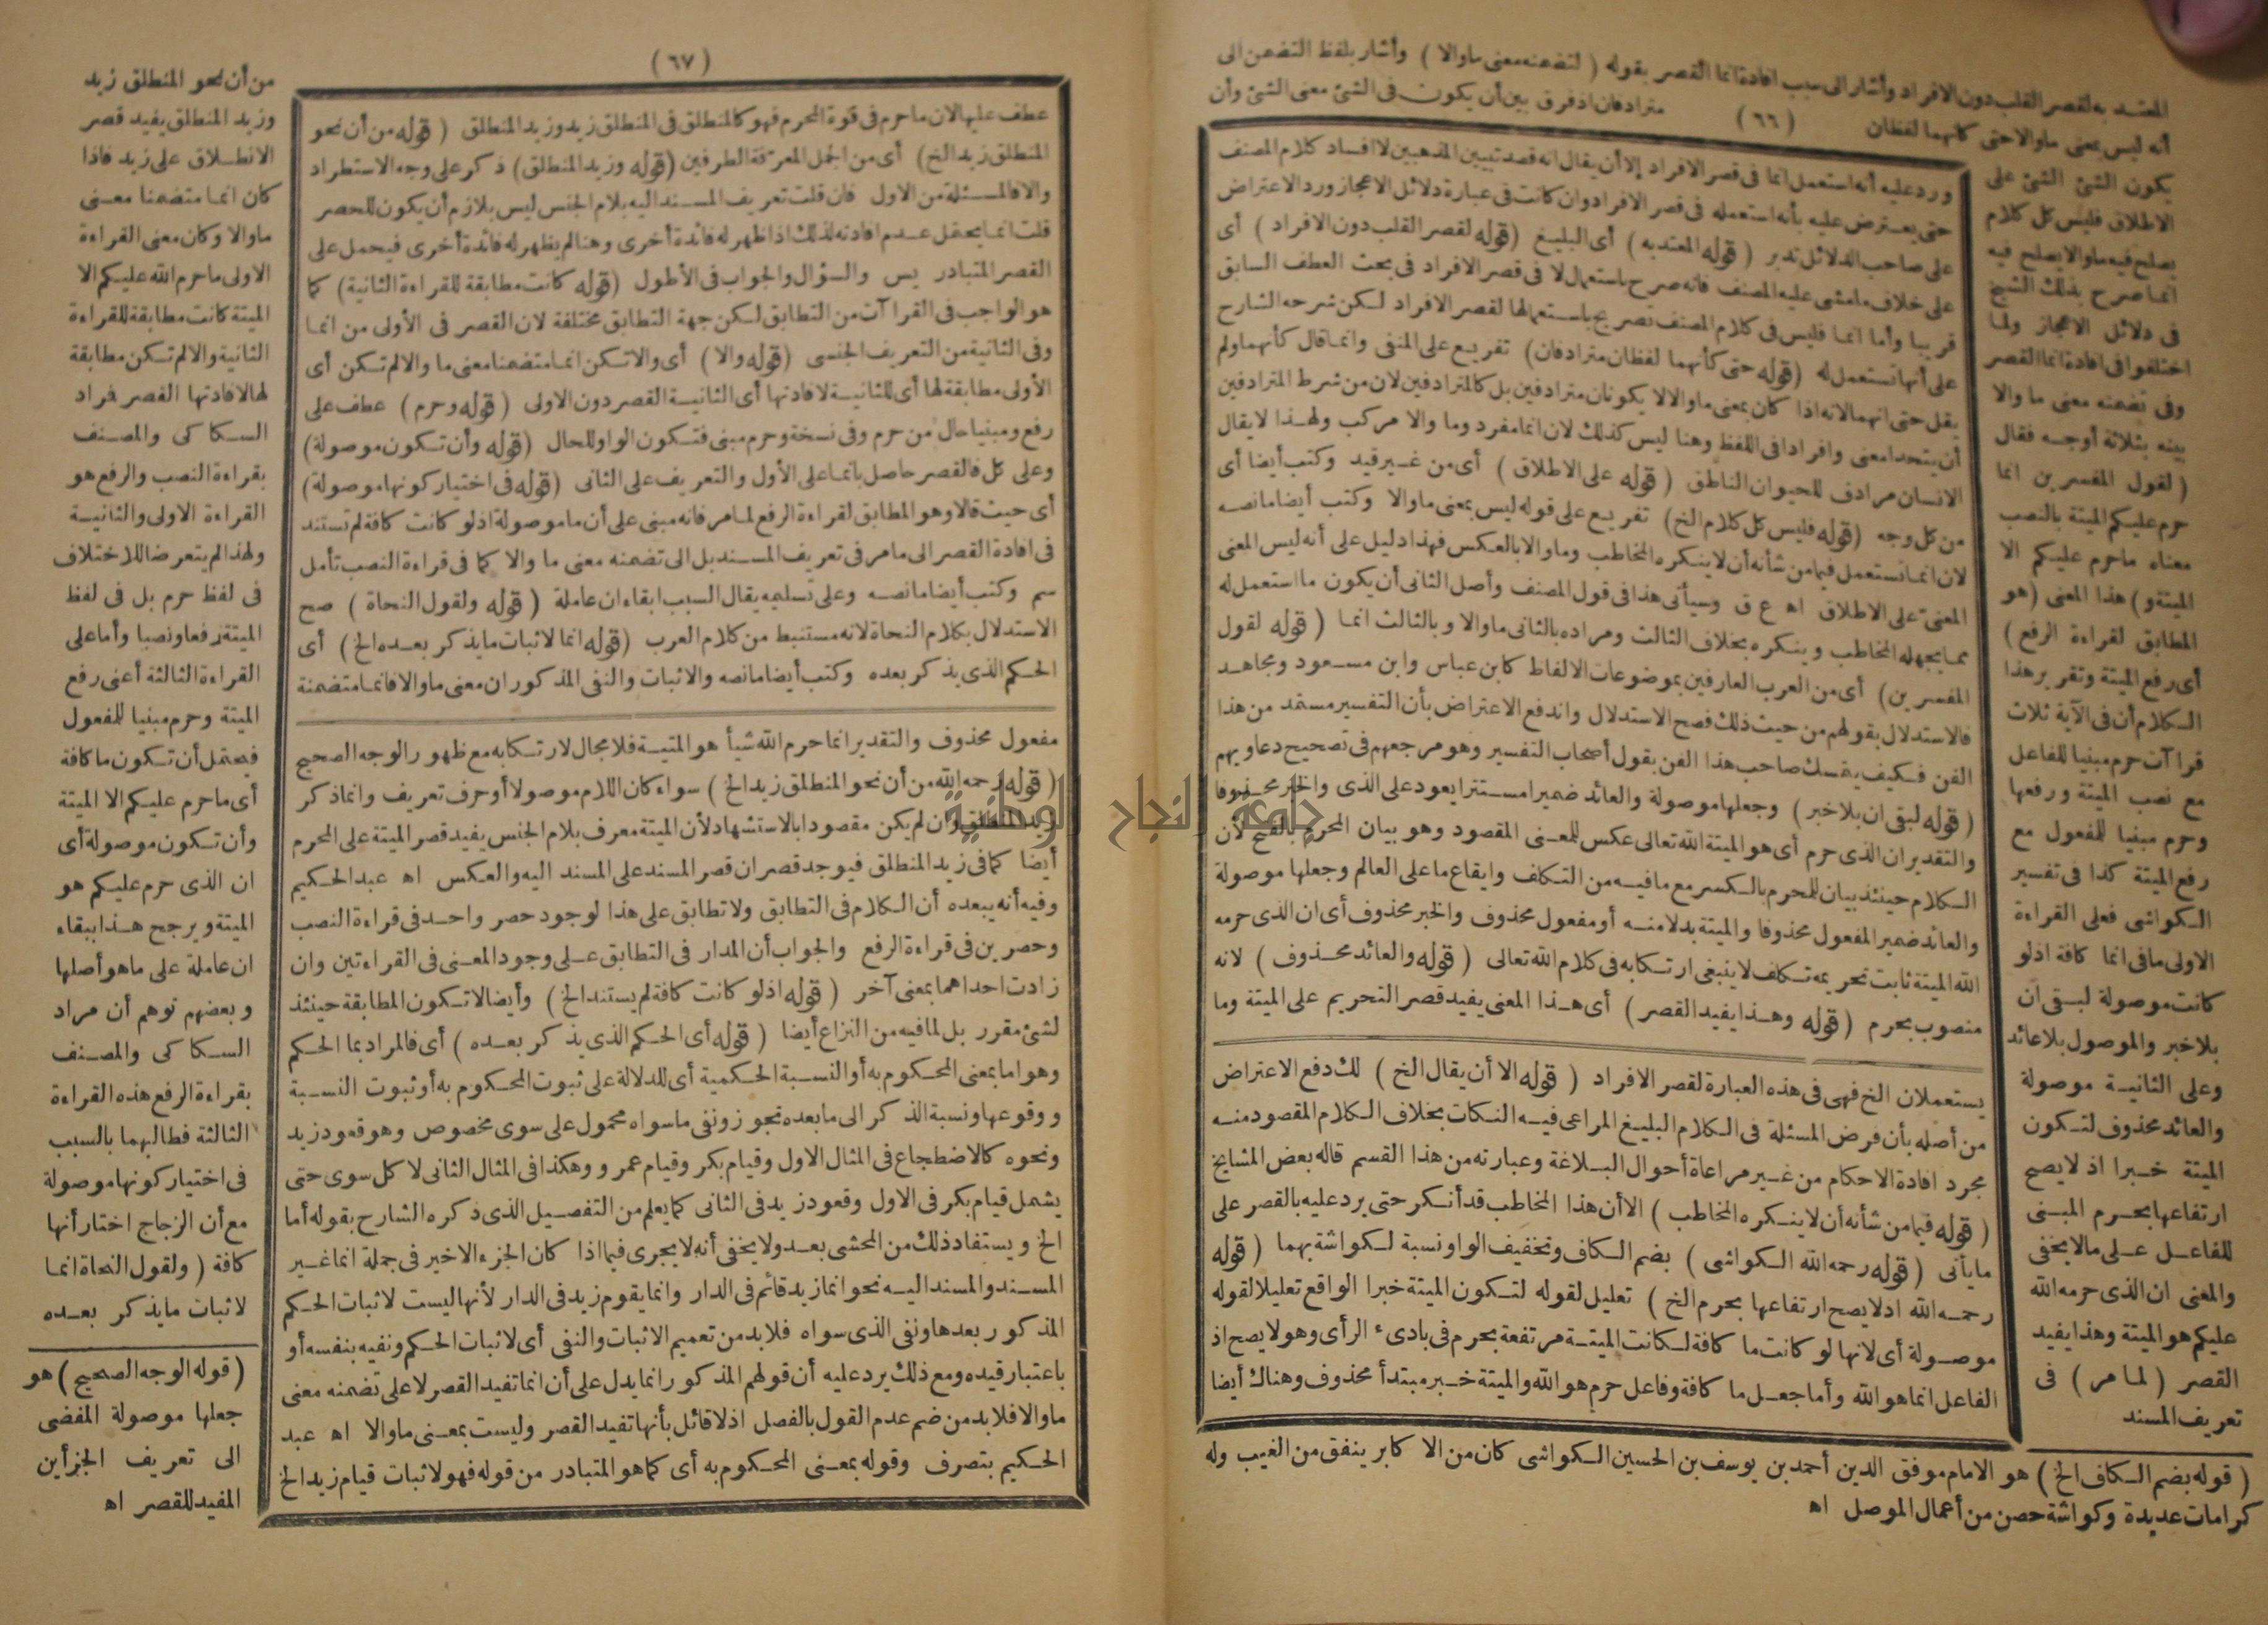 المعتد به لقصر القلب دون الافراد وأشار الى سبب افادة انما القصر بقوله (لتضمنه معنى ما والا) وأشار بلفظ التضمن الى
(٦٦)
أنه ليس بمعنى ما والا حتى كأنهما لفظان مترادفان اذ فرق بين أن يكون فى الشئ معنى الشئ وأن
يكون الشئ الشئ على
الاطلاق فليس كل كلام
يصلح فيه ما والا يصلح فيه
انما صرح بذلك الشيخ
فى دلائل الاعجاز ولما
اختلفوا فى افادة انما القصر
وفى تضمنه معنى ما والا
بينه بثلاثة أوجه فقال
(لقول المفسرين انما
حرم عليكم الميتة بالنصب
معناه ما حرم عليكم الا
الميتة و) هذا المعنى (هو
المطابق لقراءة الرفع)
أى رفع الميتة وتقرير هذا
الكلام أن فى الآية ثلاث
قراآت حرم مبنيا للفاعل
مع نصب الميتة ورفعها
وحرم مبنيا للمفعول مع
رفع الميتة كذا فى تفسير
الكواشى فعلى القراءة
الاولى ما فى انما كافة اذ لو
كانت موصولة لبقى ان
بلا خبر والموصول بلا عائد
وعلى الثانية موصولة
والعائد محذوف لتكون
الميتة خبرا اذ لا يصح
ارتفاعها بحرم المبنى
للفاعل على ما لا يخفى
والمعنى ان الذى حرمه الله
عليكم هو الميتة وهذا يفيد
القصر (لما مر) فى
تعريف المسند
ورد عليه أنه استعمل انما فى قصر الافراد إلا أن يقال انه قصد تبيين المذهبين لا افساد كلام المصنف
حتى يعترض عليه بأنه استعمله فى قصر الافراد وان كانت فى عبارة دلائل الاعجاز ورد الاعتراض
على صاحب الدلائل تدبر (قوله المعتد به) أى البليغ (قوله لقصر القلب دون الافراد) أى
على خلاف ما مشى عليه المصنف فانه صرح باستعمال لا فى قصر الافراد فى بحث العطف السابق
قريبا وأما انما فليس فى كلام المصنف تصريح باستعمالها لقصر الافراد لكن شرحه الشارح
على أنها تستعمل له (قوله حتى كأنهما لفظان مترادفان) تفريع على المنفى وانما قال كأنهما ولم
يقل حتى انهما لانه اذا كان بمعنى ما والا لا يكونان مترادفين بل كالمترادفين لان من شرط المترادفين
أن يتحدا معنى وافرادا فى اللفظ وهنا ليس كذلك لان انما مفرد وما والا مركب ولهذا لا يقال
الانسان مرادف للحيوان الناطق (قوله على الاطلاق) أى من غير قيد وكتب أيضا أى
من كل وجه (قوله فليس كل كلام الخ) تفريع على قوله ليس بمعنى ما والا وكتب أيضا ما نصه
لان انما تستعمل فيما من شأنه أن لا ينكره المخاطب وما والا بالعكس فهذا دليل على أنه ليس المعنى
المعنى على الاطلاق اه ع ق وسيأتى هذا فى قول المصنف وأصل الثانى أن يكون ما استعمل له
مما يجهله المخاطب وينكره بخلاف الثالث ومراده بالثانى ما والا وبالثالث انما (قوله لقول
المفسرين) أى من العرب العارفين بموضوعات الالفاظ كابن عباس وابن مسعود ومجاهد
فالاستدلال بقولهم من حيث ذلك فصح الاستدلال واندفع الاعتراض بأن التفسير مستمد من هذا
الفن فكيف يتمسك صاحب هذا الفن بقول أصحاب التفسير وهو مرجعهم فى تصحيح دعاويهم
(قوله لبقى ان بلا خبر) وجعلها موصولة والعائد ضميرا مستترا يعود على الذى والخبر محذوفا
والتقدير ان الذى حرم أى هو الميتة الله تعالى عكس للمعنى المقصود وهو بيان المحرم بالفتح لأن
الكلام حينئذ بيان للمحرم بالكسر مع ما فيه من التكلف وايقاع ما على العالم وجعلها موصولة
والعائد ضمير المفعول محذوفا والميتة بدلا منه أو مفعول محذوف والخبر محذوف أى ان الذى حرمه
الله الميتة ثابت تحريمه تكلف لا ينبغى ارتكابه فى كلام الله تعالى (قوله والعائد محذوف) لانه
منصوب بحرم (قوله وهذا يفيد القصر) أى هذا المعنى يفيد قصر التحريم على الميتة وما
يستعملان الخ فهى فى هذه العبارة لقصر الافراد (قوله الا أن يقال الخ) لك دفع الاعتراض
من أصله بأن فرض المسئلة فى الكلام البليغ المراعى فيه النكات بخلاف الكلام المقصود منه
مجرد افادة الاحكام من غير مراعاة أحوال البلاغة وعبارته من هذا القسم قاله بعض المشايخ
(قوله فيما من شأنه أن لا ينكره المخاطب) الا أن هذا المخاطب قد أنكر حتى يرد عليه بالقصر على
ما يأتى (قوله رحمه الله الكواشى) بضم الكاف وتخفيف الواو نسبة لكواشة بهما (قوله
رحمه الله اذ لا يصح ارتفاعها بحرم الخ) تعليل لقوله لتكون الميتة خبرا الواقع تعليلا لقوله
موصولة أى لانها لو كانت ما كافة لكانت الميتة مرتفعة بحرم فى بادىء الرأى وهو لا يصح اذ
الفاعل انما هو الله وأما جعل ما كافة وفاعل حرم هو الله والميتة خبر مبتدأ محذوف وهناك أيضا
(قوله بضم الكاف الخ) هو الامام موفق الدين أحمد بن يوسف بن الحسين الكواشى كان من الا كابر ينفق من الغيب وله
كرامات عديدة وكواشة حصن من أعمال الموصل اه
(٦٧)
عطف عليها لان ما حرم فى قوة المحرم فهو كالمنطلق فى المنطلق زيد وزيد المنطلق (قوله من أن نحو
المنطلق زيد الخ) أى من الجمل المعرفة الطرفين (قوله وزيد المنطلق) ذكر على وجه الاستطراد
والا فالمسئلة من الاول فان قلت تعريف المسند اليه بلام الجنس ليس بلازم أن يكون للحصر
قلت انما يحتمل عدم افادته لذلك اذا ظهر له فائدة أخرى وهنا لم يظهر له فائدة أخرى فيحمل على
القصر المتبادر يس والسؤال والجواب فى الأطول (قوله كانت مطابقة للقراءة الثانية) كما
هو الواجب فى القراآت من التطابق لكن جهة التطابق مختلفة لان القصر فى الأولى من انما
وفى الثانية من التعريف الجنسى (قوله والا) أى والا تكن انما متضمنا معنى ما والا لم تكن أى
الأولى مطابقة لها أى للثانية لافادتها أى الثانية القصر دون الاولى (قوله وحرم) عطف على
رفع ومبنيا حال من حرم وفى نسخة وحرم مبنى فتكون الواو للحال (قوله وأن تكون موصولة)
وعلى كل فالقصر حاصل بانما على الأول والتعريف على الثانى (قوله فى اختيار كونها موصولة)
أى حيث قالا وهو المطابق لقراءة الرفع لما مر فانه مبنى على أن ما موصولة اذ لو كانت كافة لم تستند
فى افادة القصر الى ما مر فى تعريف المسند بل الى تضمنه معنى ما والا كما فى قراءة النصب تأمل
سم وكتب أيضا ما نصه وعلى تسليمه يقال السبب ابقاء ان عاملة (قوله ولقول النحاة) صح
الاستدلال بكلام النحاة لانه مستنبط من كلام العرب (قوله انما لاثبات ما يذكر بعده الخ) أى
الحكم الذى يذكر بعده وكتب أيضا ما نصه والاثبات والنفى المذكوران معنى ما والا فانما متضمنة
مفعول محذوف والتقدير انما حرم الله شيأ هو الميتة فلا مجال لارتكابه مع ظهور الوجه الصحيح
(قوله رحمه الله من أن نحو المنطلق زيد الخ) سواء كان اللام موصولا أو حرف تعريف وانما ذكر
زيد المنطلق وان لم يكن مقصودا بالاستشهاد لأن الميتة معرف بلام الجنس يفيد قصر الميتة على المحرم
أيضا كما فى زيد المنطلق فيوجد قصران قصر المسند على المسند اليه والعكس اه عبد الحكيم
وفيه أنه يبعده أن الكلام فى التطابق ولا تطابق على هذا لوجود حصر واحد فى قراءة النصب
وحصرين فى قراءة الرفع والجواب أن المدار فى التطابق على وجود المعنى فى القراءتين وان
زادت احداهما بمعنى آخر (قوله اذ لو كانت كافة لم يستند الخ) وأيضا لا تكون المطابقة حينئذ
لشئ مقرر بل لما فيه من النزاع أيضا (قوله أى الحكم الذى يذكر بعده) أى فالمراد بما الحكم
وهو اما بمعنى المحكوم به أو النسبة الحكمية أى للدلالة على ثبوت المحكوم به أو ثبوت النسبة
ووقوعها ونسبة الذكر الى ما بعده تجوز ونفى ما سواه محمول على سوى مخصوص وهو قعود زيد
ونحوه كالاضطجاع فى المثال الاول وقيام بكر وقيام عمرو وهكذا فى المثال الثانى لا كل سوى حتى
يشمل قيام بكر فى الاول وقعود زيد فى الثانى كما يعلم من التفصيل الذى ذكره الشارح بقوله أما
الخ ويستفاد ذلك من المحشى بعد ولا يخفى أنه لا يجرى فيما اذا كان الجزء الاخير فى جملة انما غير
المسند والمسند اليه نحو انما زيد قائم فى الدار وانما يقوم زيد فى الدار لأنها ليست لاثبات الحكم
المذكور بعدها ونفى الذى سواه فلا بد من تعميم الاثبات والنفى أى لاثبات الحكم ونفيه بنفسه أو
باعتبار قيده ومع ذلك يرد عليه أن قولهم المذكور انما يدل على أن انما تفيد القصر لا على تضمنه معنى
ما والا فلا بد من ضم عدم القول بالفصل اذ لا قائل بأنها تفيد القصر وليست بمعنى ما والا اه عبد
الحكيم بتصرف وقوله بمعنى المحكوم به أى كما هو المتبادر من قوله فهو لاثبات قيام زيد الخ
من أن نحو المنطلق زيد
وزيد المنطلق يفيد قصر
الانطلاق على زيد فاذا
كان انما متضمنا معنى
ما والا وكان معنى القراءة
الاولى ما حرم الله عليكم الا
الميتة كانت مطابقة للقراءة
الثانية والا لم تكن مطابقة
لها لافادتها القصر فراد
السكاكى والمصنف
بقراءة النصب والرفع هو
القراءة الاولى والثانية
ولهذا لم يتعرضا للاختلاف
فى لفظ حرم بل فى لفظ
الميتة رفعا ونصبا وأما على
القراءة الثالثة أعنى رفع
الميتة وحرم مبنيا للمفعول
فيحتمل أن تكون ما كافة
أى ما حرم عليكم الا الميتة
وأن تكون موصولة أى
ان الذى حرم عليكم هو
الميتة ويرجح هذا ببقاء
ان عاملة على ما هو أصلها
وبعضهم توهم أن مراد
السكاكى والمصنف
بقراءة الرفع هذه القراءة
الثالثة فطالبهما بالسبب
فى اختيار كونها موصولة
مع أن الزجاج اختار أنها
كافة (ولقول النحاة انما
لاثبات ما يذكر بعده
(قوله الوجه الصحيح) هو
جعلها موصولة المفضى
الى تعريف الجزأين
المفيد للقصر اه
جامعة النجاح الوطنية